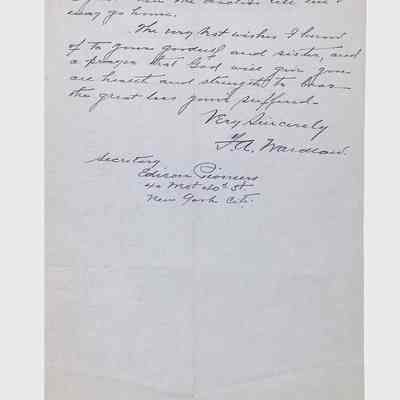 may go home.
The very best wishes I know
of to your goodself and sister, and
a prayer that God will give you
all health and strength to bear
the great loss you suffered.
Very Sincerely
F.A. Wardlaw.
Secretary
Edison Pioneers
40 West 40th St.
New York City.